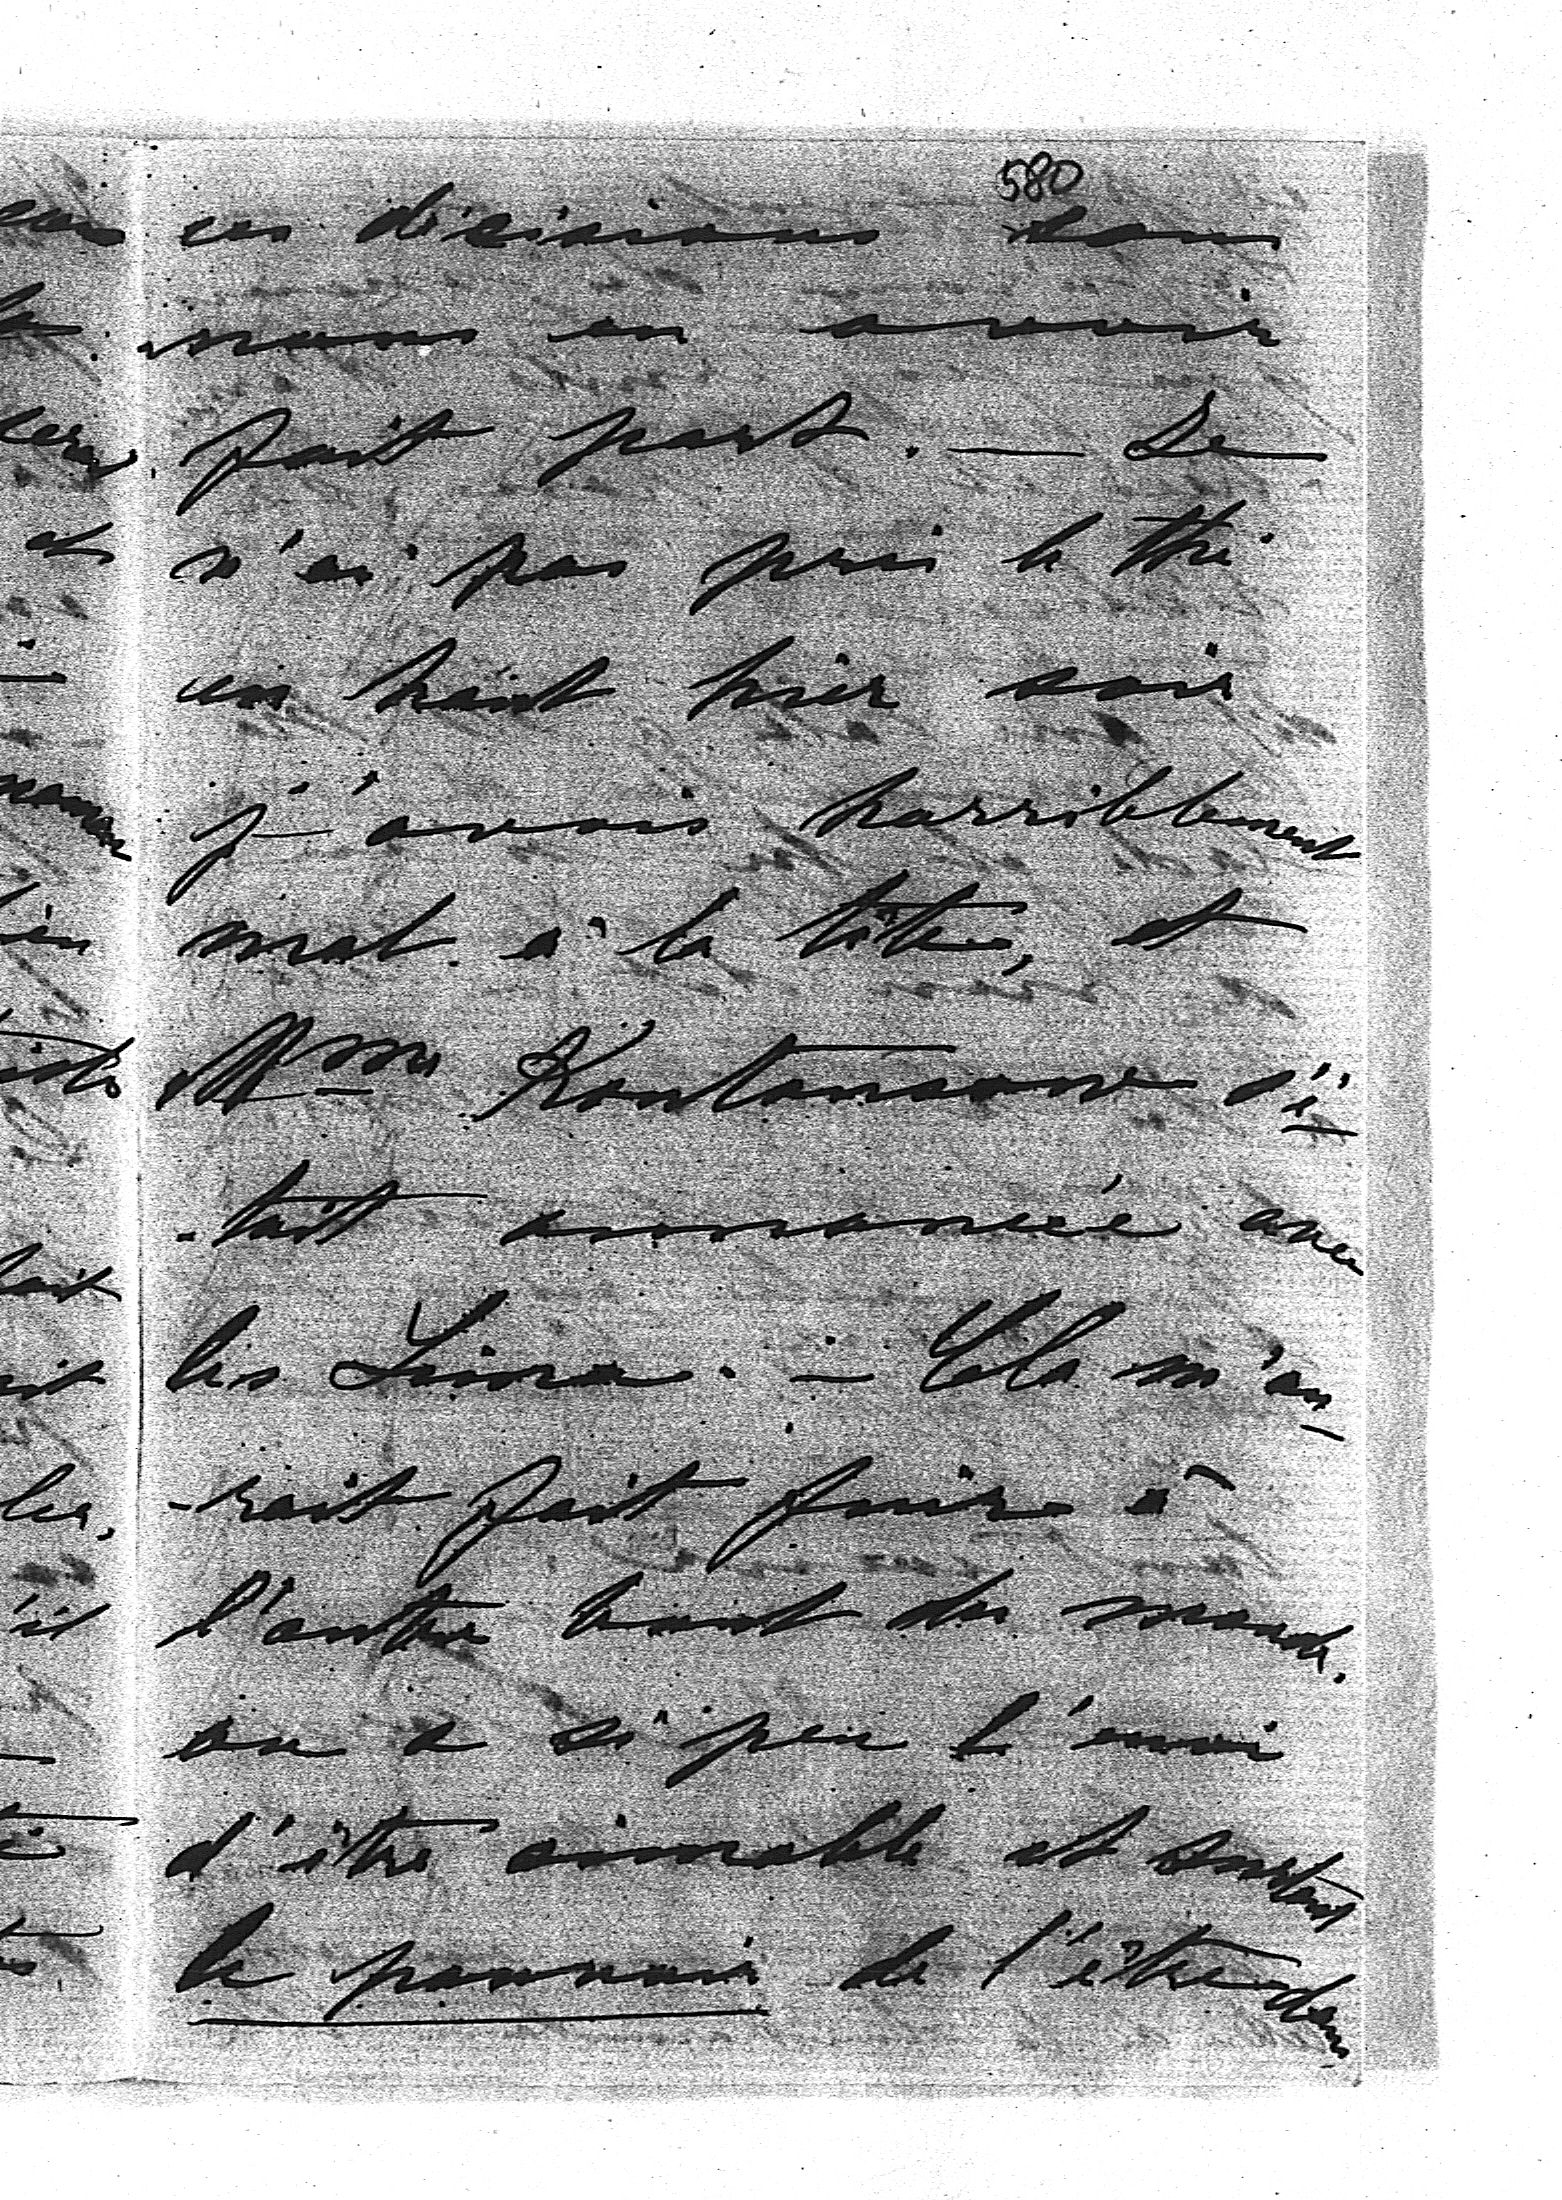 580
ces décisions sans
nous en avoir
fait part. — Je
n'ai pas pris le thé
en haut hier soir
j'avais horriblement
mal à la tête, et
Mme Koutousow s'é-
-tait annoncée avec
les — Cela m'au-
-rait fait fuire à
l'autre bout du monde.
on a si peu l'envie
d'être aimable et surtout
le pouvoir de l'être dans